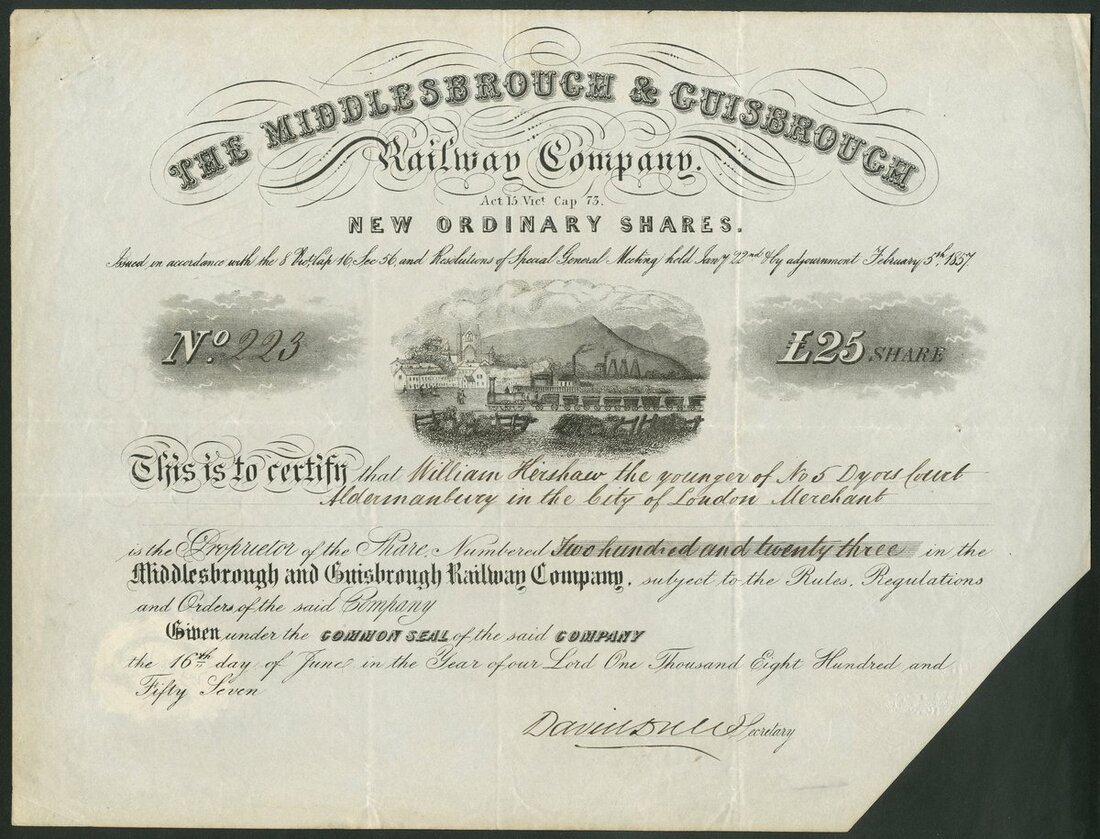 THE MIDDLESBROUGH & GUISBROUGH
Railway Company.
Act 15 Vict. Cap 73.
NEW ORDINARY SHARES.
Issued in accordance with the 8 Vic. Cap 16, Sec 56, and Resolutions of Special General Meeting held Jany 22nd & by adjournment February 5th. 1857.
No. 223
£25 SHARE
This is to certify that William Hirshaw the younger of No 5 Dyers Court
Aldermanbury in the City of London Merchant
is the Proprietor of the Share, Numbered Two hundred and twenty three in the
Middlesbrough and Guisbrough Railway Company, subject to the Rules, Regulations
and Orders of the said Company
Given under the COMMON SEAL of the said COMPANY
the 16th day of June in the Year of our Lord One Thousand Eight Hundred and
Fifty Seven
Secretary